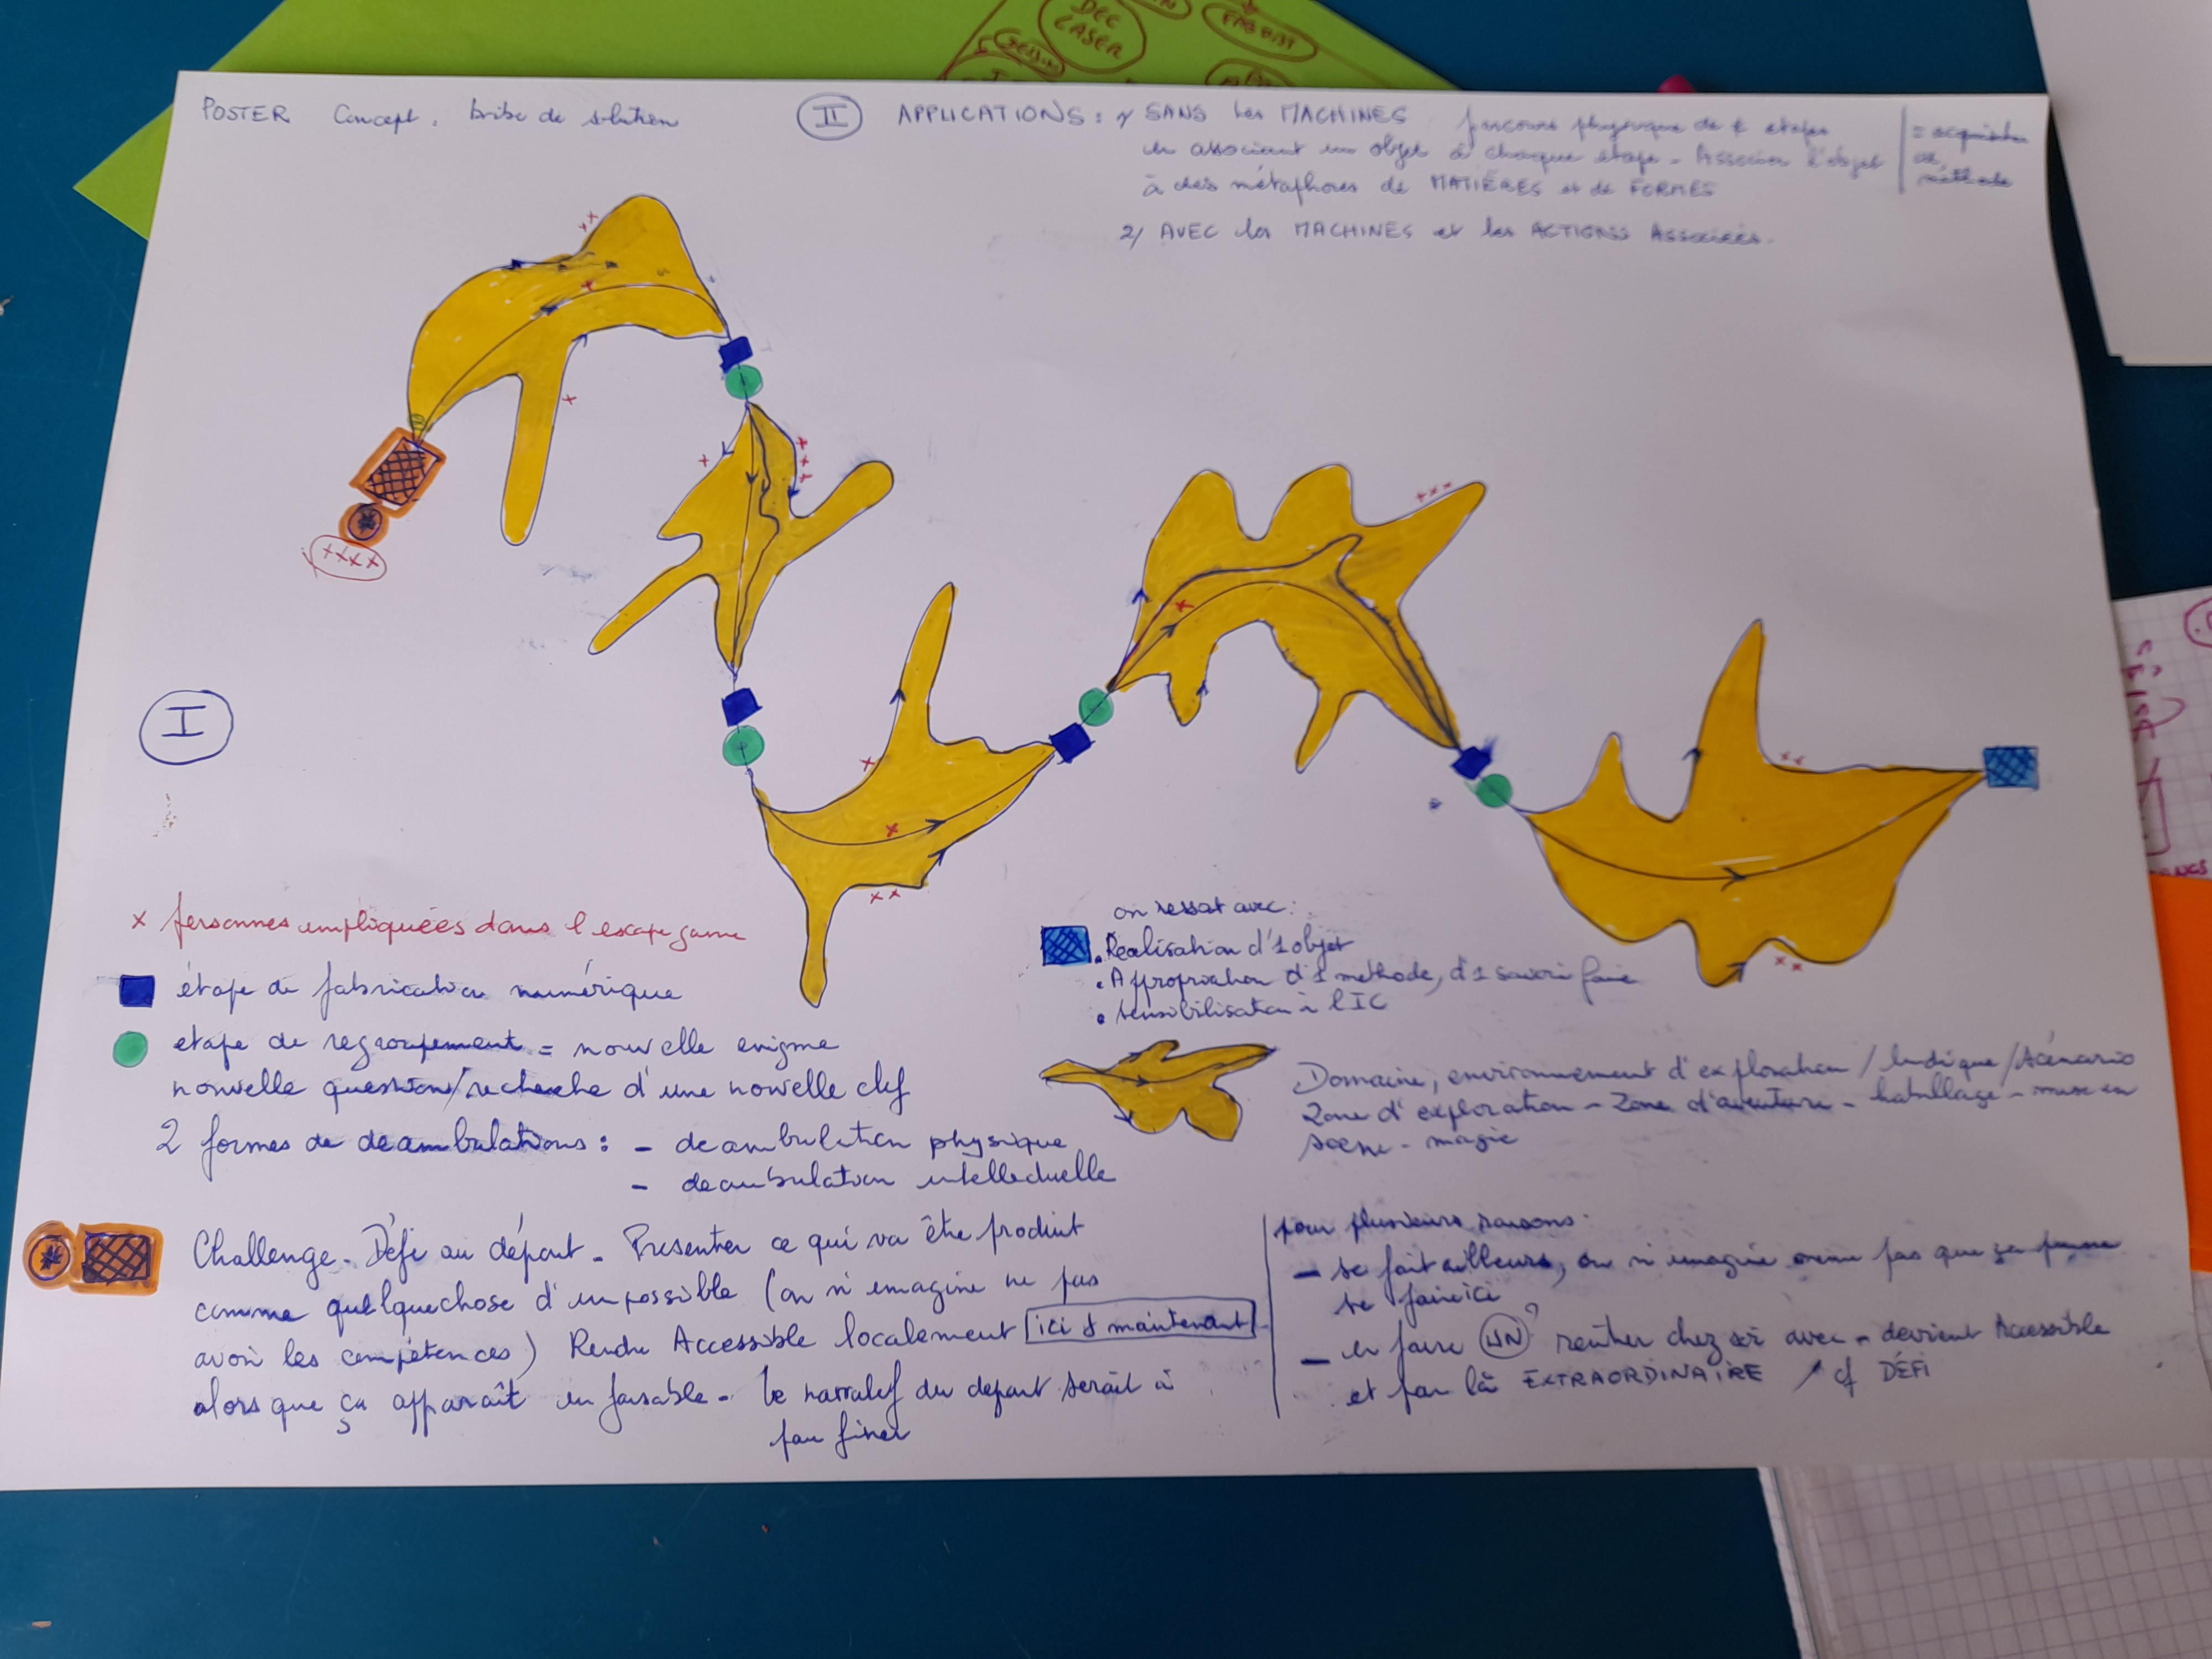 DEC
LASER
FABRIQ
POSTER Concept, bribe de solution
II APPLICATIONS : 1/ SANS les MACHINES parcours physique de étapes
en associant un objet à chaque étape - Associer l'objet
à des métaphores de MATIÈRES et de FORMES
= acquisition
de
méthode
2/ AVEC les MACHINES et les ACTIONS Associées.
I
x personnes impliquées dans l'escape game
étape de fabrication numérique
etape de regroupement = nouvelle enigme
nouvelle question/recherche d'une nouvelle clef
2 formes de deambulations : - deambulation physique
- deambulation intellectuelle
on ressort avec :
. Réalisation d'1 objet
. Appropriation d'1 méthode, d'1 savoir faire
. sensibilisation à l'IC
Domaine, environnement d'exploration / ludique / scénario
Zone d'exploration - Zone d'aventure - habillage - mise en
scene - magie
Challenge - Défi au départ - Presenter ce qui va être produit
comme quelquechose d'impossible (on n'imagine ne pas
avoir les compétences) Rendre Accessible localement ici & maintenant
alors que ça apparaît infaisable - le narratif du depart serait à
peaufiner
pour plusieurs raisons :
- se fait ailleurs, on n'imagine meme pas que ça puisse
se faire ici
- en faire UN ? rentrer chez soi avec - devient Accessible
et par là EXTRAORDINAIRE cf DÉFI